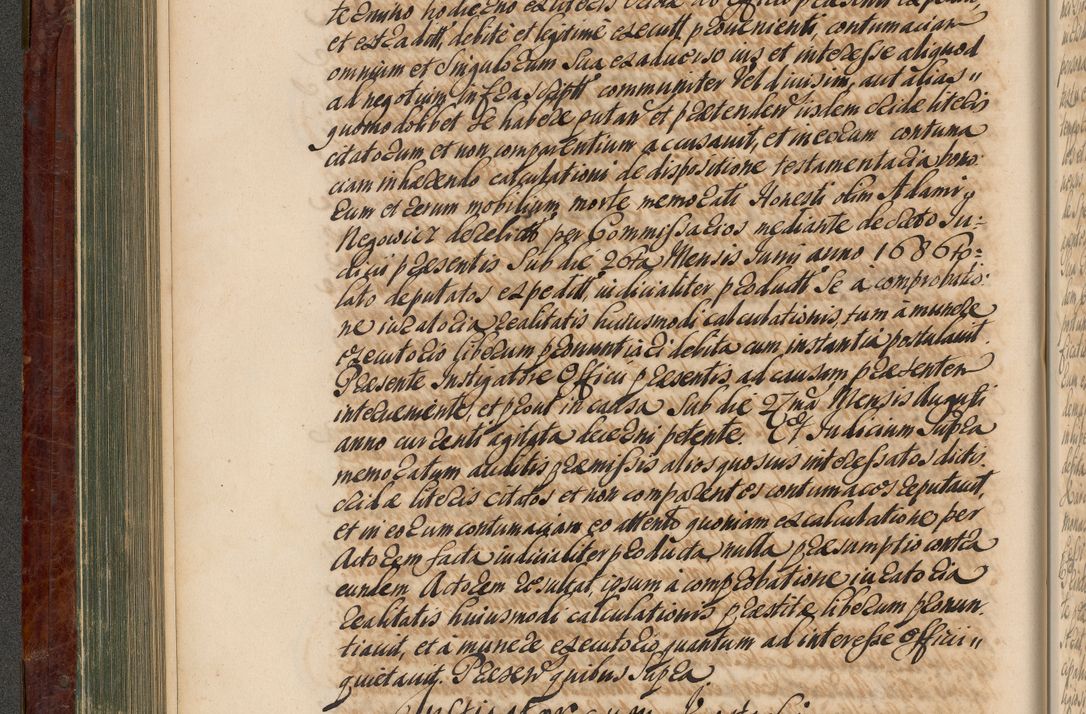 termino hodierno ex literis
et extradit, debitè et legitimè execut, provenienti, contumaciam
omnium et singulorum sua ex adverso ius et interesse aliquod
ad negotium infrascript communiter vel divisim, aut alias"
quomodolibet se habere putan et prætenden iisdem cridæ literis
citatorum et non comparentium accusavit, et in eorum contuma
ciam inhærendo calculationi de dispositione testamentaria bono:
rum et rerum mobilium morte memorati Honesti olim Adami
Negowicz derelict per Commissarios mediante decreto Ju-
dicii præsentis sub die 26ta Mensis Junii anno 1686to
lato deputatos expedit, iudicialiter product se à comprobatio:
ne iuratoria realitatis huiusmodi calculationis, tum à munere
executorio liberum pronuntiari debita cum instantia postulavit.
Præsente Instigatore Officii præsentis, ad causam præsentem
interveniente, et prout in causa sub die 27ma Mensis Augusti
anno currenti agitata decerni petente. Et Judicium supra
memoratum auditis præmissis alios quosvis interessatos dictis
cridæ literis citatos et non comparentes contumaces reputavit,
et in eorum contumaciam eo attento quoniam ex calculatione per
Actorem facta iudicialiter producta, nulla præsamptio contra
eundem Actorem resultat, ipsum à comprobatione iuratoria
realitatis huiusmodi calculationis præstitæ, liberum pronun-
tiavit, et à munere executorio, quantum ad interesse Officii"
quietavit. Præsen quibus supra.